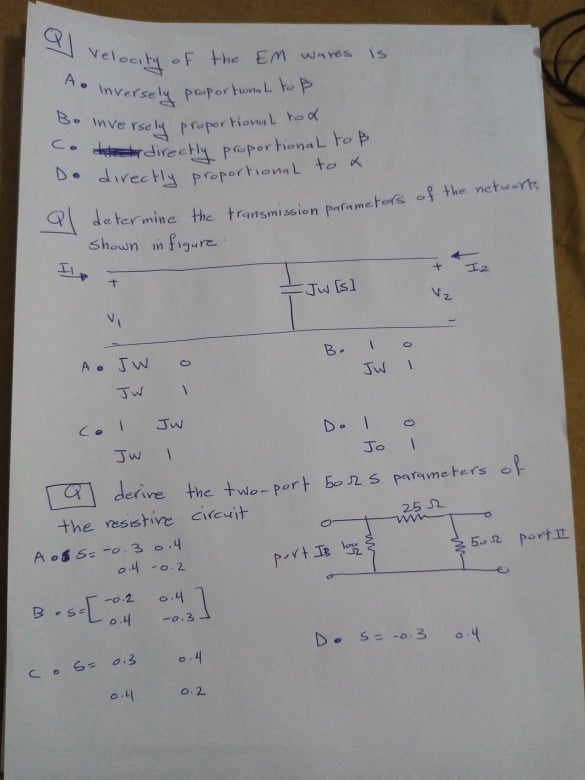 Q| velocity of the EM waves is
A. inversely proportional to β
B. inversely proportional to α
C. directly proportional to β
D. directly proportional to α
Q| determine the transmission parameters of the network
shown in figure:
I1 + JW [S] + I2
V1 V2
- -
A. JW 0 B. 1 0
JW 1 JW 1
C. 1 JW D. 1 0
JW 1 Jo 1
Q derive the two-port 50Ω S parameters of
the resistive circuit
25 Ω
A. S= -0.3 0.4
0.4 -0.2
port I 100 Ω 50Ω port II
B. S=[ -0.2 0.4
0.4 -0.3 ]
D. S= -0.3 0.4
C. S= 0.3 0.4
0.4 0.2